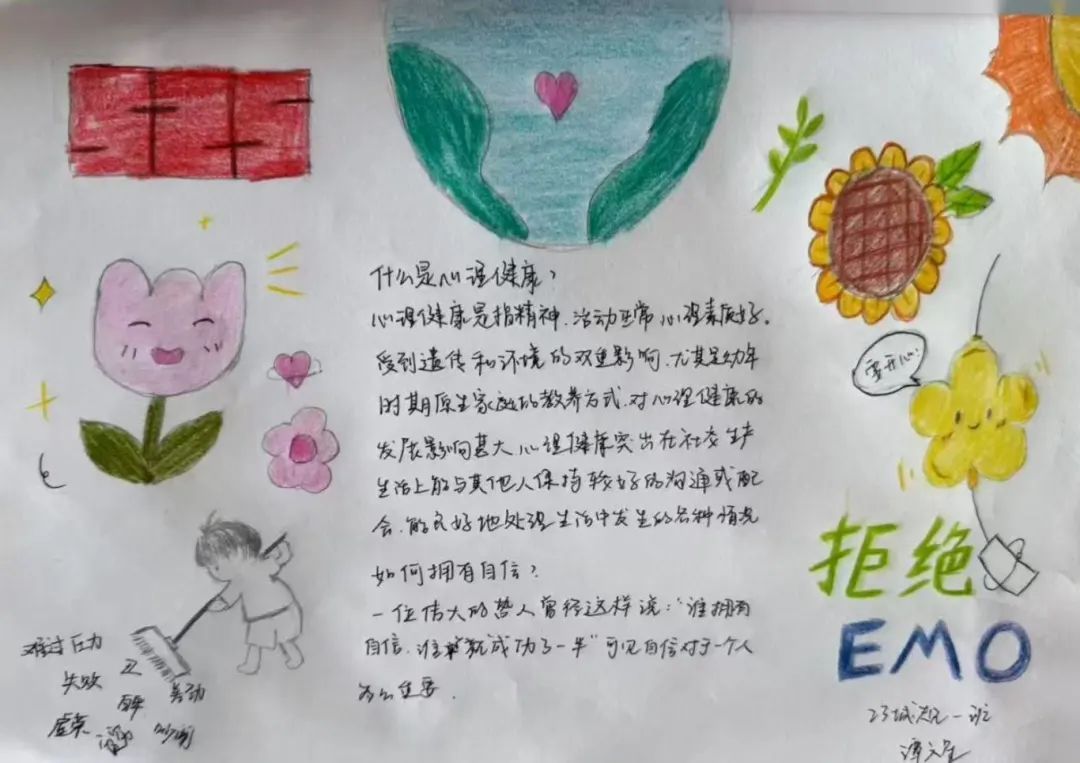 什么是心理健康？
心理健康是指精神、活动正常心理素质好。
受到遗传和环境的双重影响，尤其是幼年
时期原生家庭的教养方式，对心理健康的
发展影响甚大心理健康突出在社交生产
生活上能与其他人保持较好的沟通或配
合，能良好地处理生活中发生的各种情况
如何拥有自信？
一位伟大的哲人曾经这样说：“谁拥有
自信，谁就成功了一半”可见自信对于一个人
多么重要．
要开心：
拒绝
EMO
难过压力
失败
虚荣
一班